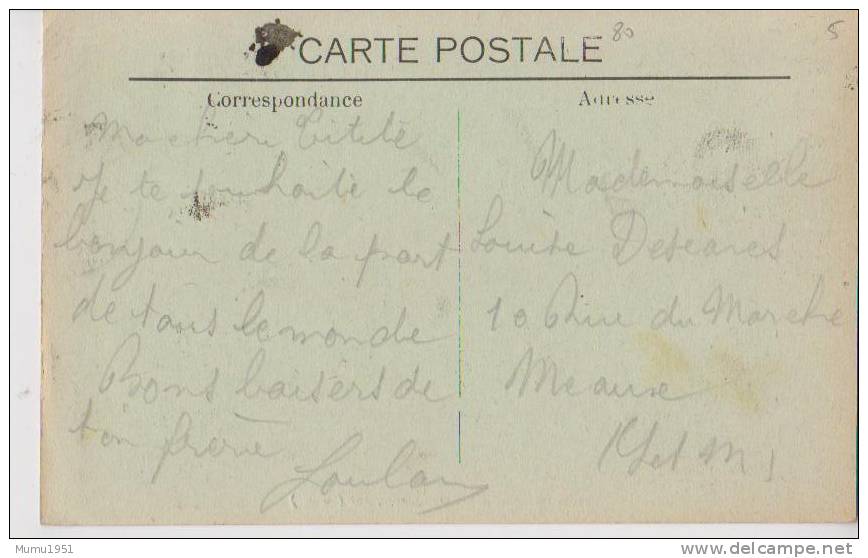 CARTE POSTALE
80
5
Correspondance
Adresse
Ma cheri Titite
Je te souhaite le
bonjour de la part
de tous le monde
Bons baisers de
ton frère
Loulou
Mademoiselle
Louise
10 Rue du Marché
Meaux
(S et M)
Mumu1951
delcampe.net